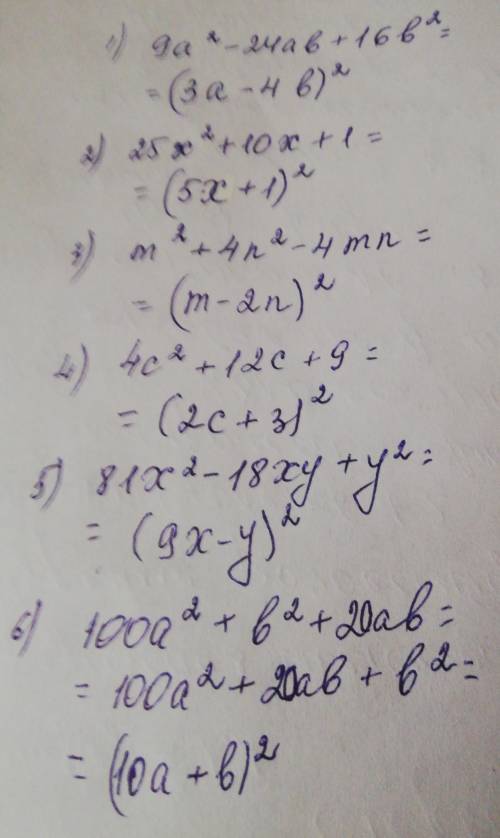 1) 9a² - 24ab + 16b² =
= (3a - 4b)²
2) 25x² + 10x + 1 =
= (5x + 1)²
3) m² + 4n² - 4mn =
= (m - 2n)²
4) 4c² + 12c + 9 =
= (2c + 3)²
5) 81x² - 18xy + y² =
= (9x - y)²
6) 100a² + b² + 20ab =
= 100a² + 20ab + b² =
= (10a + b)²